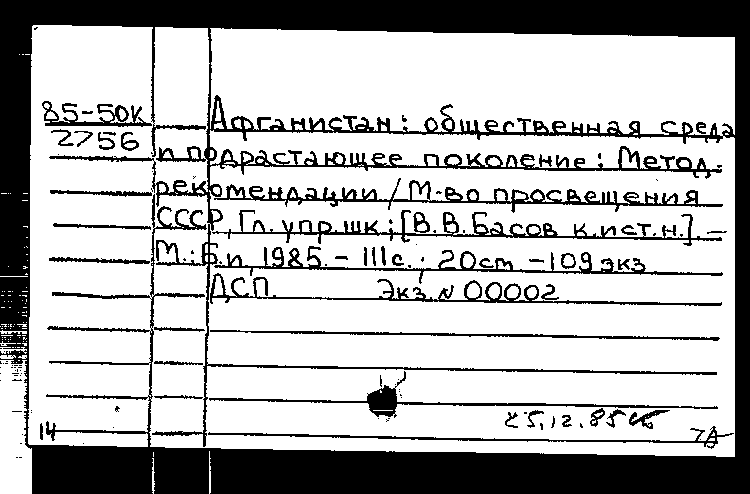 85-50К
2756
Афганистан: общественная среда
и подрастающее поколение: Метод.
рекомендации / М-во просвещения
СССР, Гл. упр. шк.; [В.В.Басов к.ист.н.]. –
М.: Б.и, 1985. – 111с.; 20cm – 109 экз
ДСП. Экз. N 00002
25.12.85
14